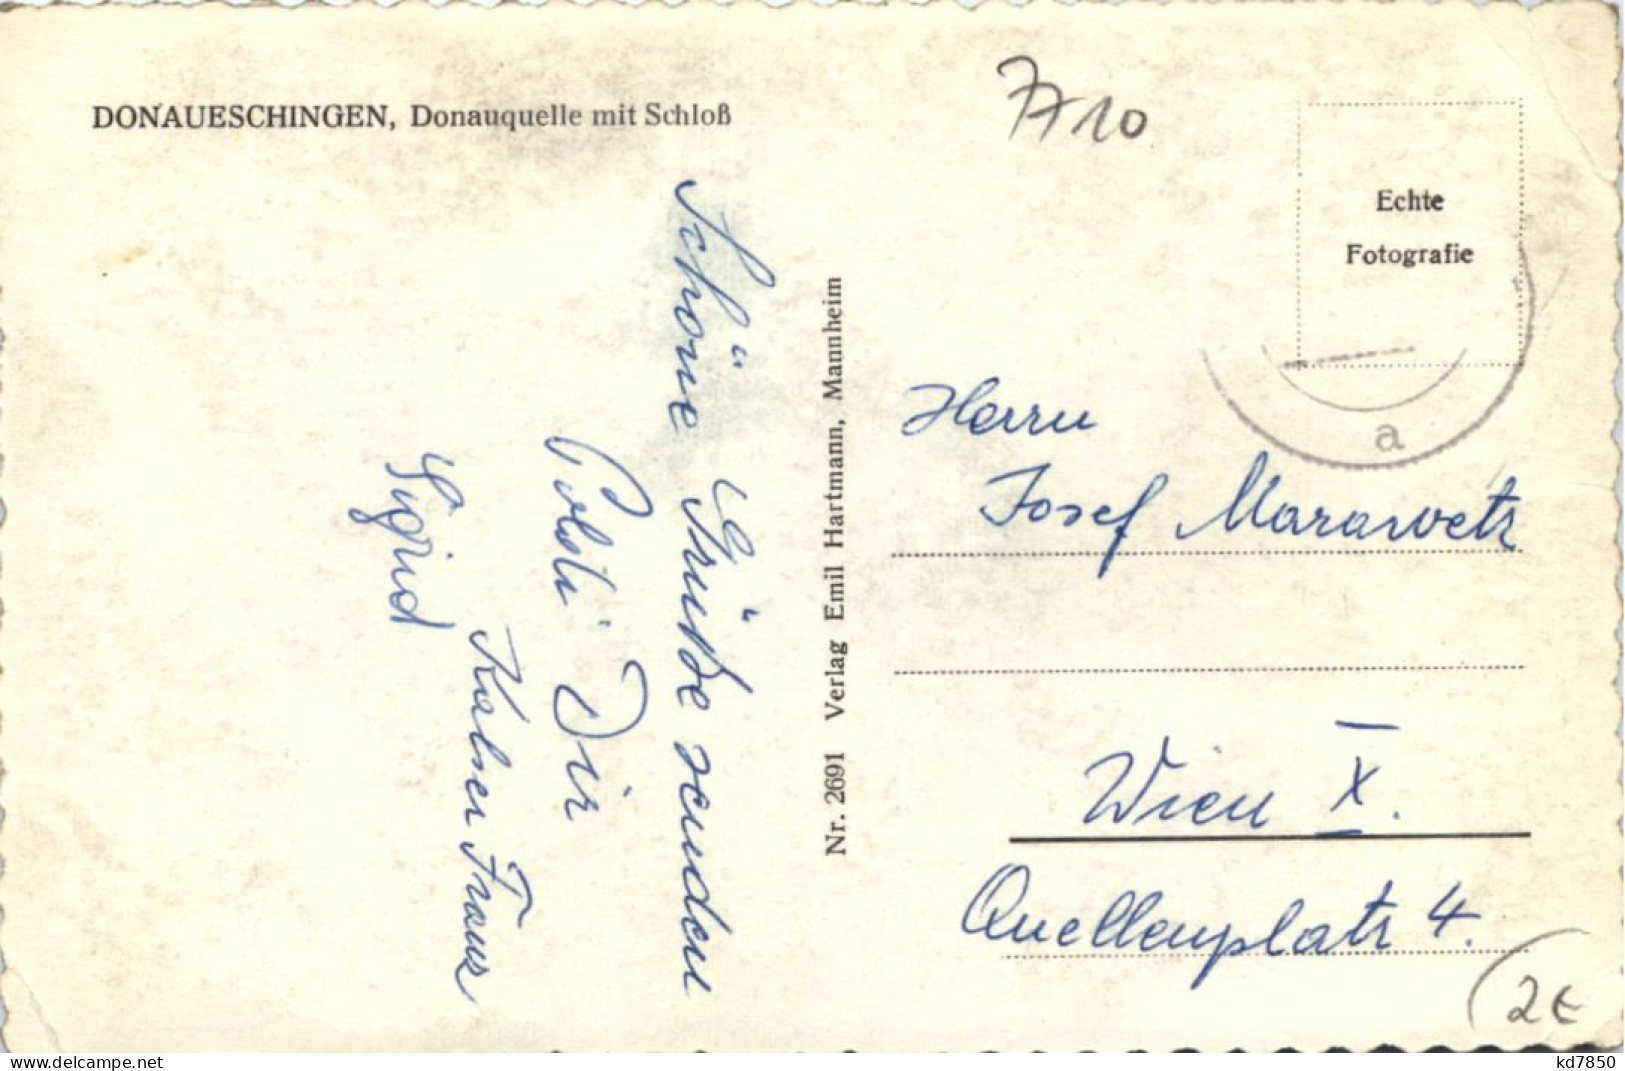 DONAUESCHINGEN, Donauquelle mit Schloß
7710
Echte
Fotografie
a
Schöne Grüße senden
Dir
Kalser Franz
Sigrid
Nr. 2691 Verlag Emil Hartmann, Mannheim
Herrn
Josef Marawetz
Wien X.
Quellenplatz 4.
2€
www.delcampe.net
kd7850